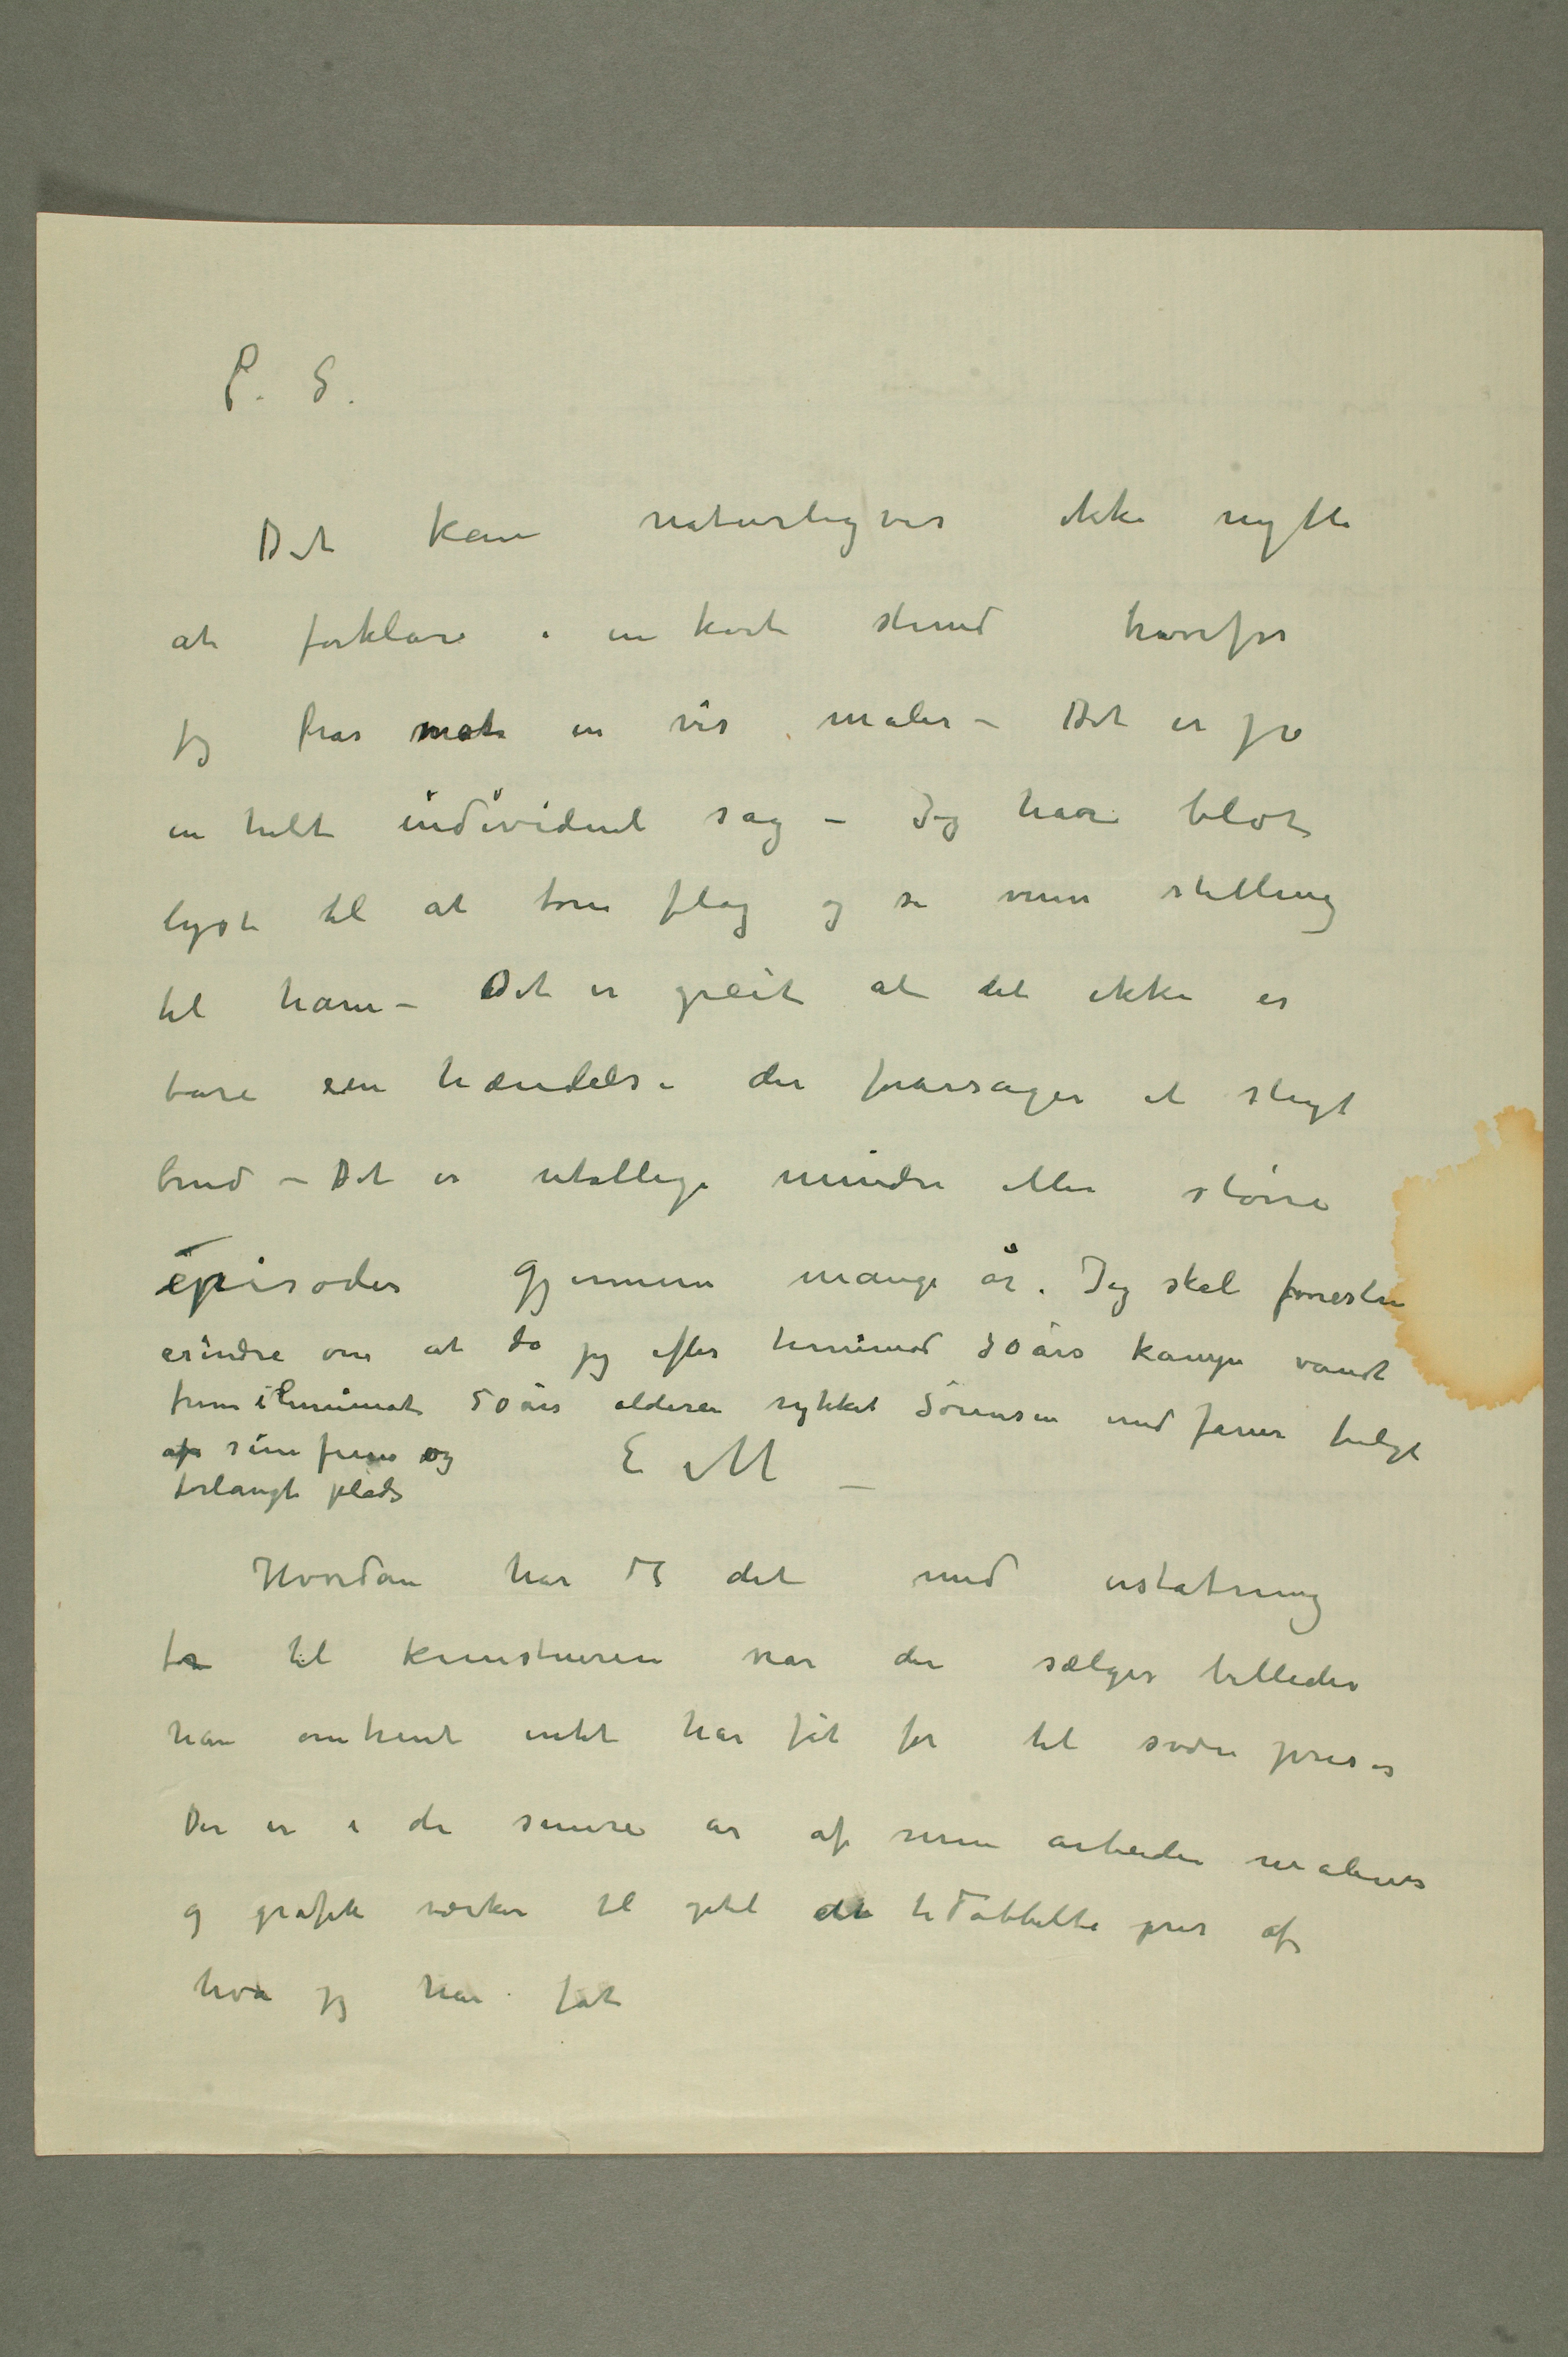 P. S.
Det kan naturligvis ikke nytte
at forklare i en kort stund hvorfor
jeg har mot en vis maler – Det er jo
en helt individuel sag – Jeg har blot
lyst til at tone flag og se min stilling
til ham – Det er greit at det ikke er
bare en hændelse der forårsager et sligt
brud – Det er utallige mindre eller større
episoder gjennem mange år. Jeg skal forresten
erindre om at da jeg efter henimod 30 års kamp vandt
frem i henimot 50 års alderen rykket Sørensen med faner fulgt
af sine
forlangte plads
E M –
Hvordan har det med erstatning
for til kunstneren når der sælges billeder
han omtrent intet har fåt for til svære priser
Der er i de senere år af mine arbeider malerier
og grafik værker til optil det tidobbelte pris af
hva jeg har fåt